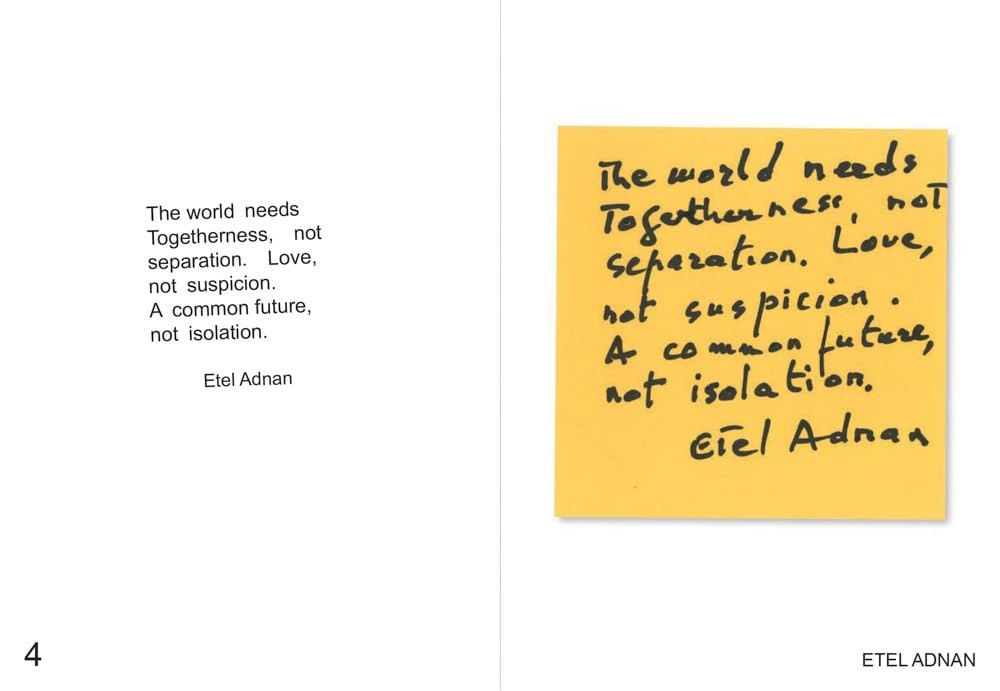 The world needs
Togetherness, not
separation. Love,
not suspicion.
A common future,
not isolation.
Etel Adnan
4
The world needs
Togetherness, not
separation. Love,
not suspicion.
A common future,
not isolation.
Etel Adnan
ETEL ADNAN